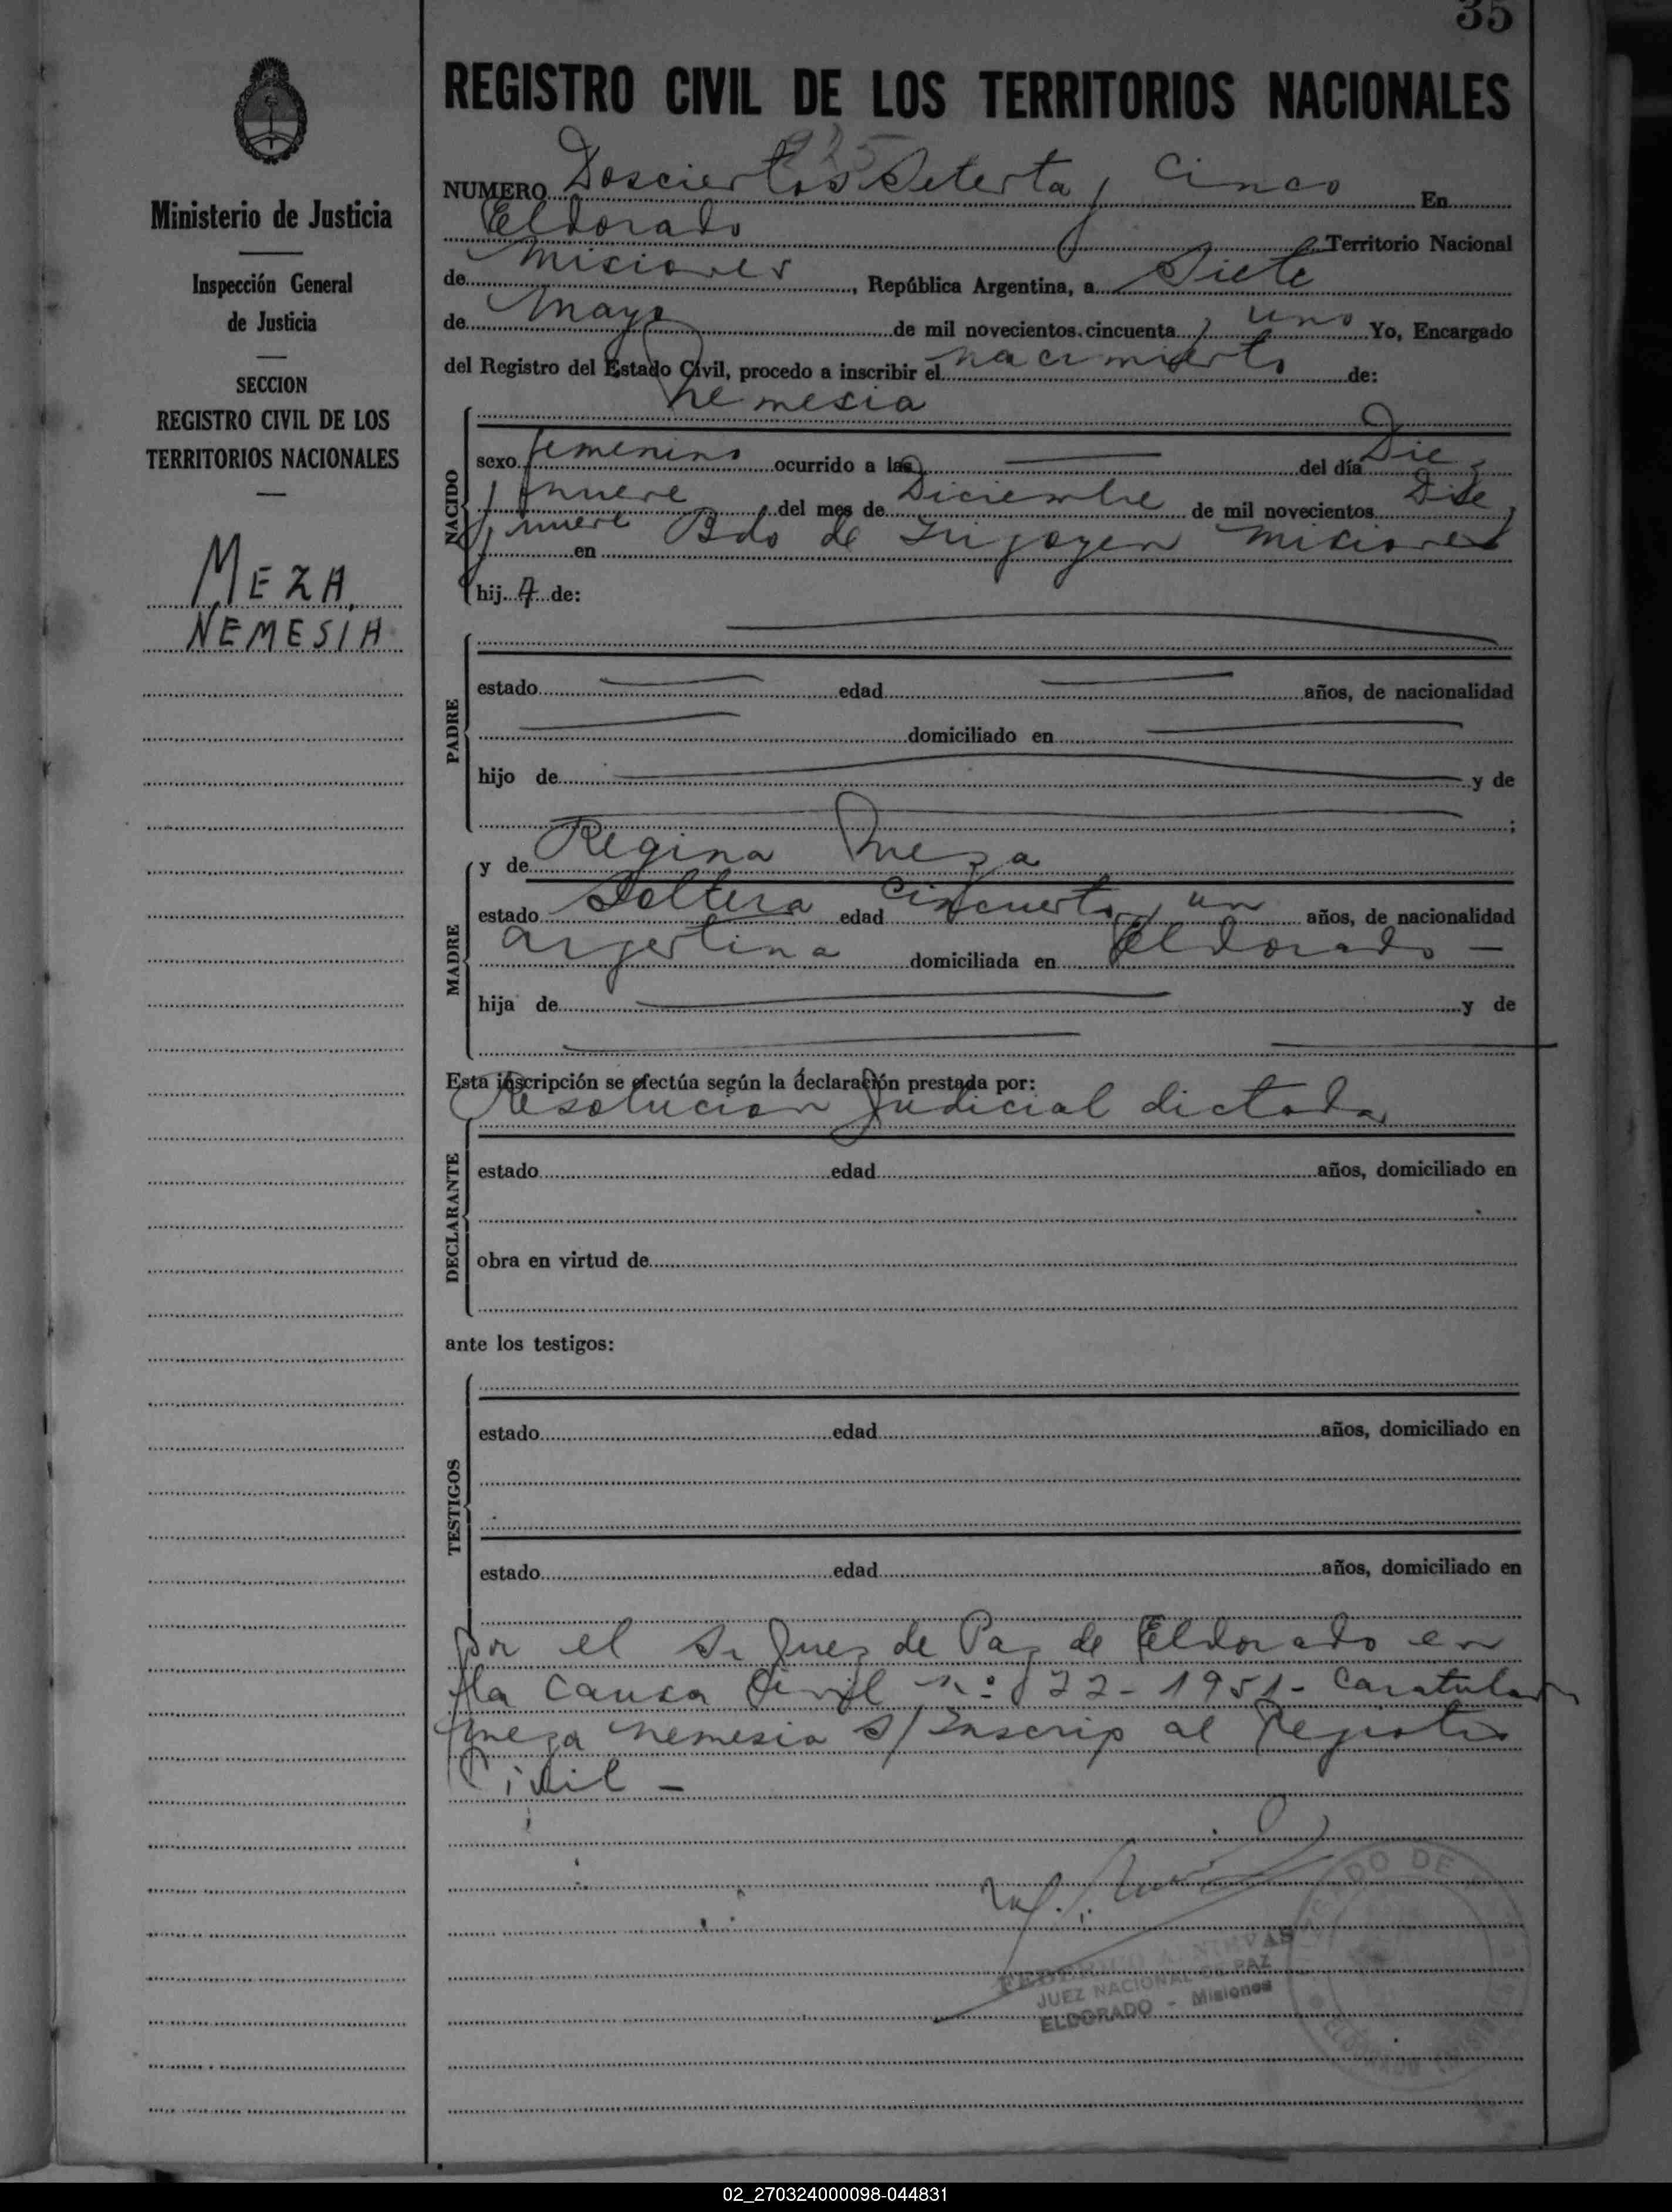 35
REGISTRO CIVIL DE LOS TERRITORIOS NACIONALES
Ministerio de Justicia
Inspección General
de Justicia
SECCION
REGISTRO CIVIL DE LOS
TERRITORIOS NACIONALES
MEZA
NEMESIA
NUMERO Doscientos Setenta y Cinco En
Eldorado Territorio Nacional
de Misiones, República Argentina, a Siete
de Mayo de mil novecientos cincuenta y uno Yo, Encargado
del Registro del Estado Civil, procedo a inscribir el nacimiento de:
Nemesia
NACIDO
sexo femenino ocurrido a las — del día Diez
y nueve del mes de Diciembre de mil novecientos Diez
y nueve en Bdo de Irigoyen Misiones
hij A de:
PADRE
estado — edad — años, de nacionalidad
— domiciliado en —
hijo de — y de
— ;
MADRE
y de Regina Meza
estado Soltera edad Cincuenta y un años, de nacionalidad
argentina domiciliada en Eldorado —
hija de — y de
Esta inscripción se efectúa según la declaración prestada por:
Resolucion Judicial dictada
DECLARANTE
estado edad años, domiciliado en
obra en virtud de
ante los testigos:
TESTIGOS
estado edad años, domiciliado en
estado edad años, domiciliado en
por el Sr Juez de Paz de Eldorado en
la Causa Civil nº 122 - 1951 - Caratulada
Meza Nemesia s/ Inscrip al Registro
Civil -
JUEZ NACIONAL DE PAZ
ELDORADO - Misiones
02_270324000098-044831